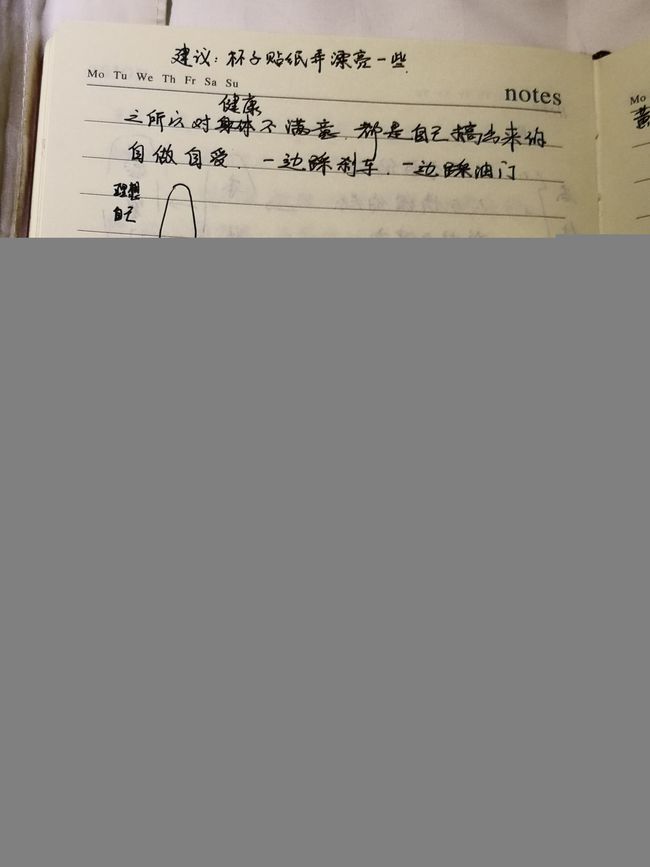 建议：杯子贴纸弄漂亮一些
Mo Tu We Th Fr Sa Su
notes
健康
之所以对身体不满意，都是自己搞出来的
自做自受，一边踩刹车，一边踩油门
理想
自己
Mo